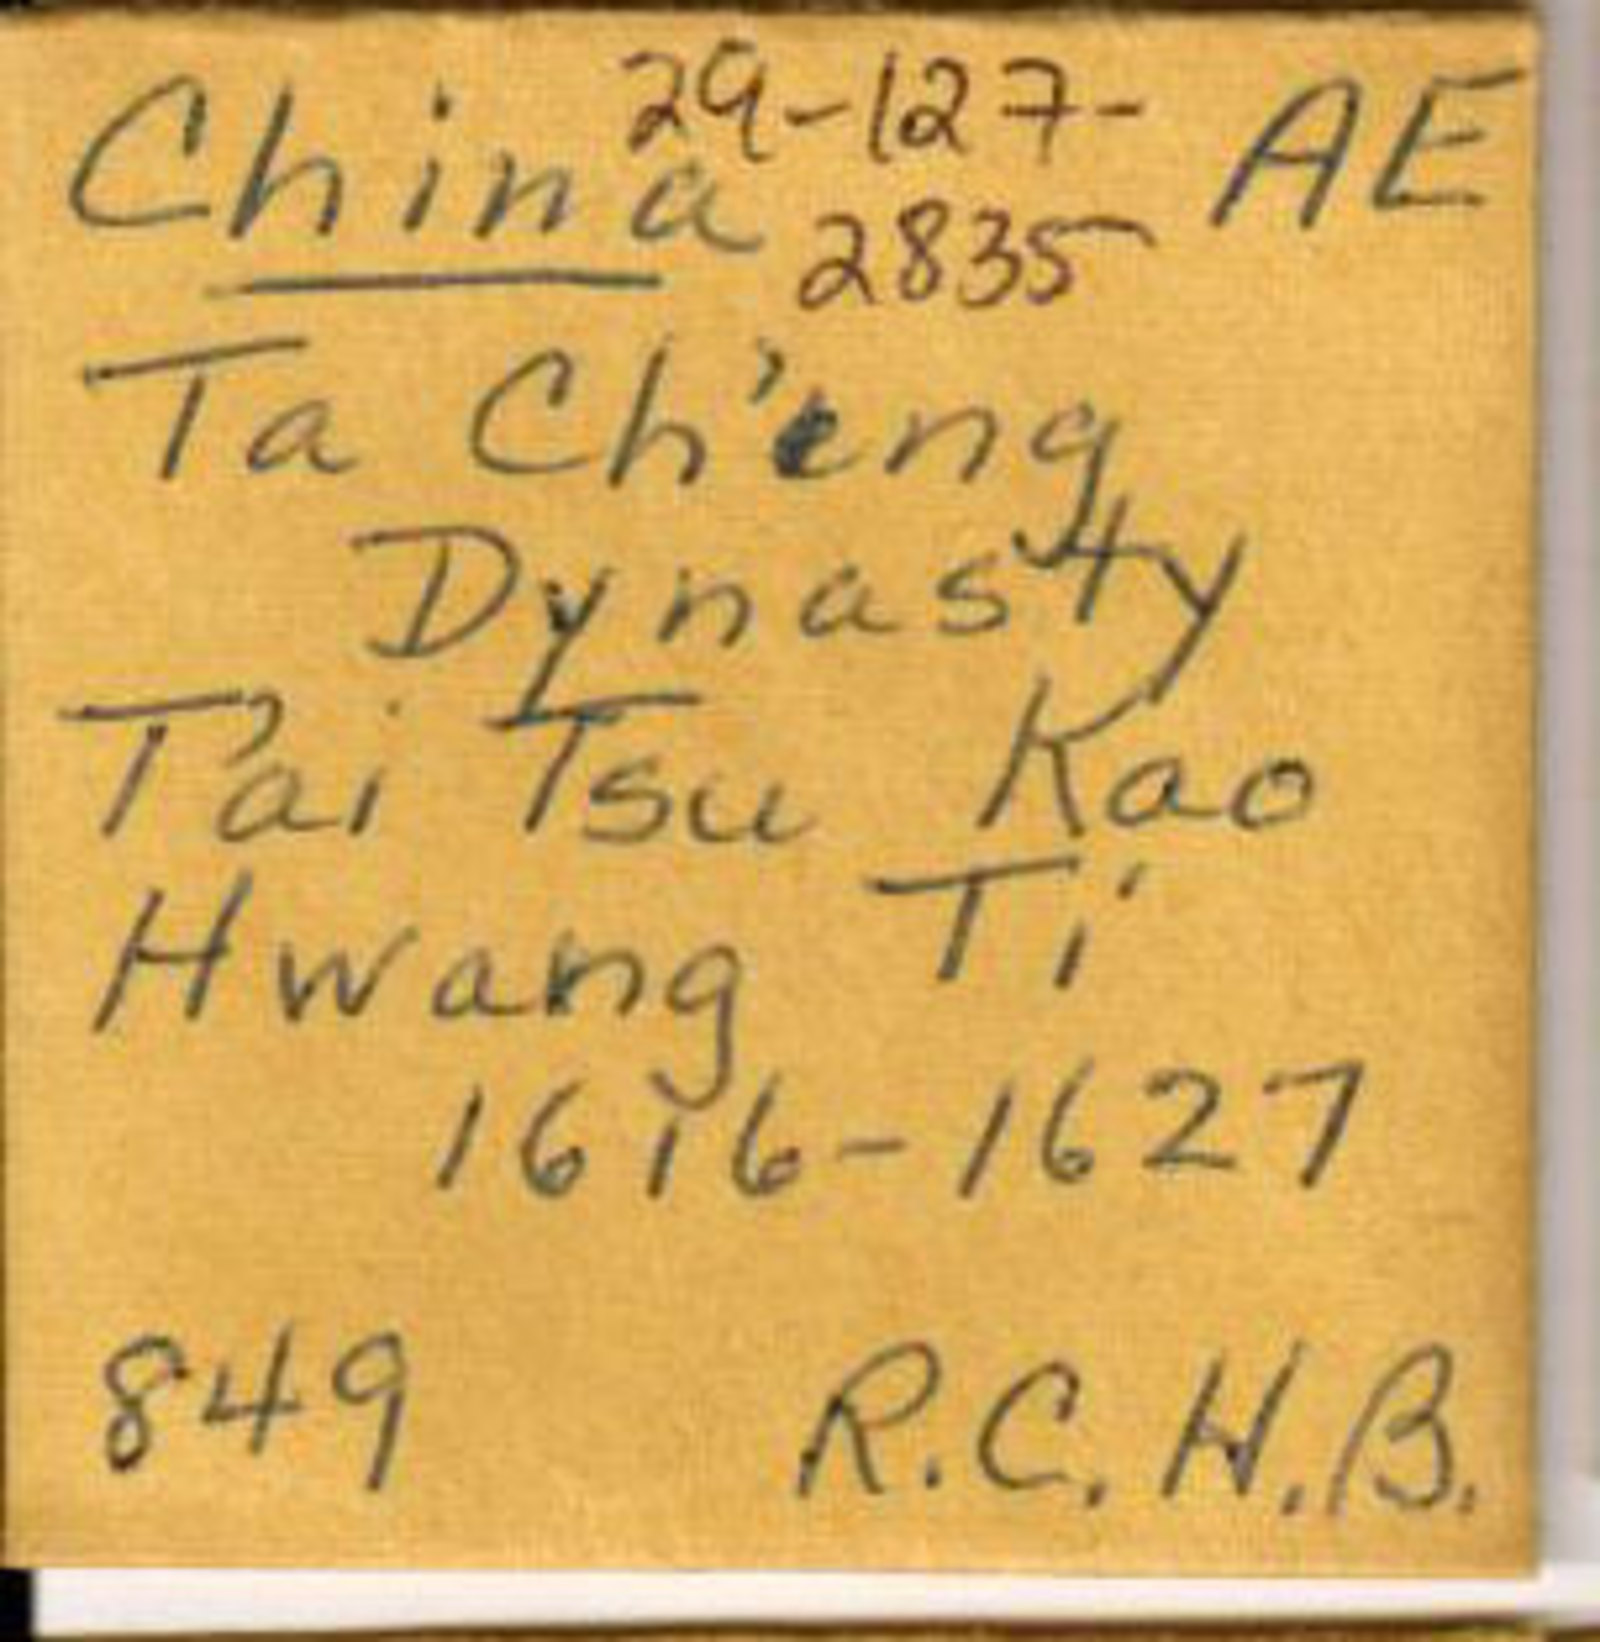 China 29-127- AE
2835
Ta Ch'eng
Dynasty
T'ai Tsu Kao
Hwang Ti
1616-1627
849 R.C.H.B.